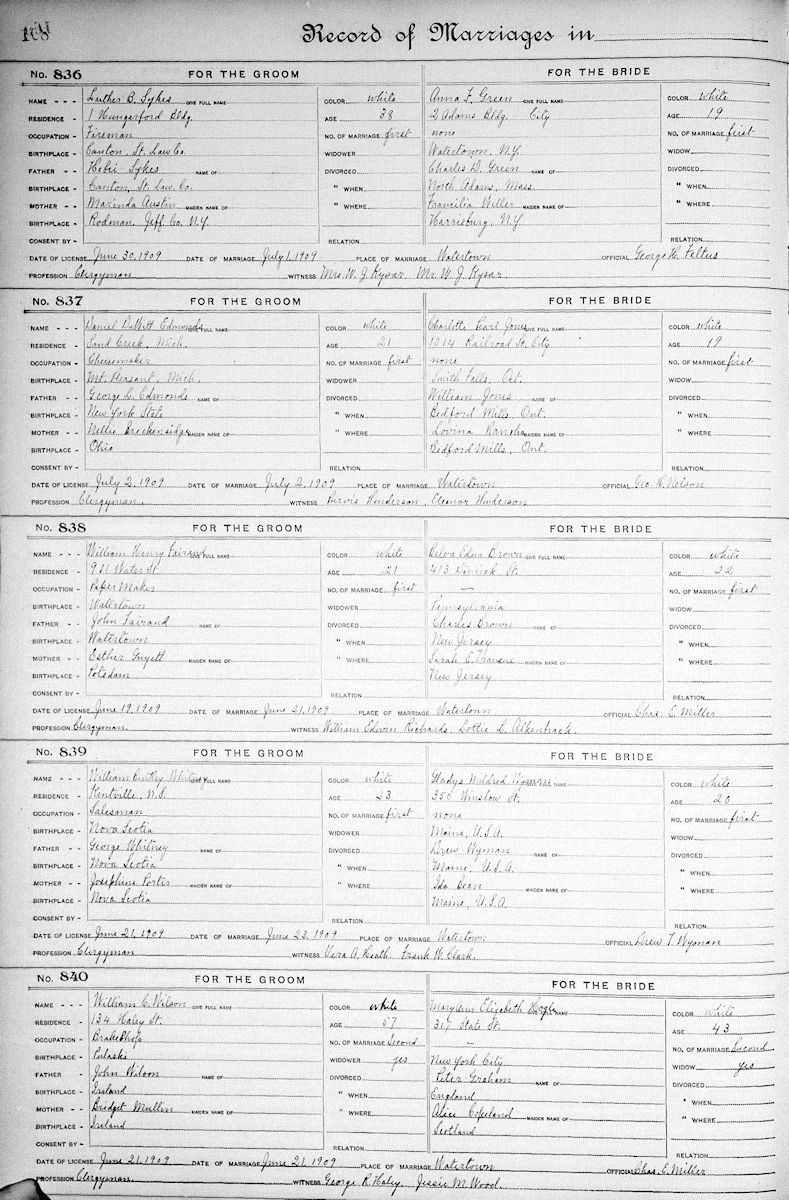 168
Record of Marriages in
No. 836 FOR THE GROOM FOR THE BRIDE
NAME - - - Luther B. Sykes GIVE FULL NAME COLOR white Anna F. Green GIVE FULL NAME COLOR white
RESIDENCE - 1 Hungerford Bldg. AGE 38 2 Adams Bldg. City AGE 19
OCCUPATION - Fireman NO. OF MARRIAGE first none NO. OF MARRIAGE first
BIRTHPLACE - Canton, St. Law. Co. WIDOWER Watertown, N.Y. WIDOW
FATHER - - Sykes NAME OF DIVORCED Charles D. Green NAME OF DIVORCED
BIRTHPLACE - Canton, St. Law. Co. " WHEN North Adams, Mass. " WHEN
MOTHER - - Marinda Austin MAIDEN NAME OF " WHERE Francilia Weller MAIDEN NAME OF " WHERE
BIRTHPLACE - Rodman, Jeff. Co. N.Y. Harrisburg, N.Y.
CONSENT BY - RELATION RELATION
DATE OF LICENSE June 30, 1909 DATE OF MARRIAGE July 1, 1909 PLACE OF MARRIAGE Watertown OFFICIAL George H. Feltus
PROFESSION Clergyman. WITNESS Mrs. W. J. Kysar, Mr. W. J. Kysar.
No. 837 FOR THE GROOM FOR THE BRIDE
NAME - - - Daniel DeWitt Edmonds GIVE FULL NAME COLOR white Charlotte Pearl Jones GIVE FULL NAME COLOR white
RESIDENCE - Sand Creek, Mich. AGE 21 1014 Railroad St. City AGE 19
OCCUPATION - Cheesemaker NO. OF MARRIAGE first none NO. OF MARRIAGE first
BIRTHPLACE - Mt. Pleasant, Mich. WIDOWER Smith Falls, Ont. WIDOW
FATHER - - George L. Edmonds NAME OF DIVORCED William Jones NAME OF DIVORCED
BIRTHPLACE - New York State " WHEN Bedford Mills, Ont. " WHEN
MOTHER - - Nellie Breckensidge MAIDEN NAME OF " WHERE Lovina MAIDEN NAME OF " WHERE
BIRTHPLACE - Ohio Bedford Mills, Ont.
CONSENT BY - RELATION RELATION
DATE OF LICENSE July 2, 1909 DATE OF MARRIAGE July 2, 1909 PLACE OF MARRIAGE Watertown OFFICIAL Geo. H. Nelson
PROFESSION Clergyman. WITNESS Purvis Henderson, Eleanor Henderson
No. 838 FOR THE GROOM FOR THE BRIDE
NAME - - - William Henry Fairand GIVE FULL NAME COLOR white Edna Brown GIVE FULL NAME COLOR white
RESIDENCE - 921 Water St. AGE 21 413 St. AGE 22
OCCUPATION - Paper Maker NO. OF MARRIAGE first — NO. OF MARRIAGE first
BIRTHPLACE - Watertown WIDOWER Pennsylvania WIDOW
FATHER - - John Fairand NAME OF DIVORCED Charles Brown NAME OF DIVORCED
BIRTHPLACE - Watertown " WHEN New Jersey " WHEN
MOTHER - - Esther Guyett MAIDEN NAME OF " WHERE Sarah E. MAIDEN NAME OF " WHERE
BIRTHPLACE - Potsdam New Jersey
CONSENT BY - RELATION RELATION
DATE OF LICENSE June 19, 1909 DATE OF MARRIAGE June 21, 1909 PLACE OF MARRIAGE Watertown OFFICIAL Chas. E. Miller
PROFESSION Clergyman. WITNESS William Edwin Richards, Lottie L. Alkenbrack.
No. 839 FOR THE GROOM FOR THE BRIDE
NAME - - - William Whitney GIVE FULL NAME COLOR white Gladys Mildred Wyman GIVE FULL NAME COLOR white
RESIDENCE - Kentville, N.S. AGE 23 350 Winslow St. AGE 20
OCCUPATION - Salesman NO. OF MARRIAGE first none NO. OF MARRIAGE first
BIRTHPLACE - Nova Scotia WIDOWER Maine, U.S.A. WIDOW
FATHER - - George Whitney NAME OF DIVORCED Drew Wyman NAME OF DIVORCED
BIRTHPLACE - Nova Scotia " WHEN Maine, U.S.A. " WHEN
MOTHER - - Josephine Porter MAIDEN NAME OF " WHERE Ida Bean MAIDEN NAME OF " WHERE
BIRTHPLACE - Nova Scotia Maine, U.S.A.
CONSENT BY - RELATION RELATION
DATE OF LICENSE June 21, 1909 DATE OF MARRIAGE June 23, 1909 PLACE OF MARRIAGE Watertown OFFICIAL Drew T. Wyman
PROFESSION Clergyman WITNESS Vera A. Heath, Frank W. Clark.
No. 840 FOR THE GROOM FOR THE BRIDE
NAME - - - William C. Wilson GIVE FULL NAME COLOR white Mary Ann Elizabeth Hogle GIVE FULL NAME COLOR white
RESIDENCE - 134 Haley St. AGE 57 317 State St. AGE 43
OCCUPATION - Brake Shops NO. OF MARRIAGE Second — NO. OF MARRIAGE Second
BIRTHPLACE - Pulaski WIDOWER yes New York City WIDOW yes
FATHER - - John Wilson NAME OF DIVORCED Peter Graham NAME OF DIVORCED
BIRTHPLACE - Ireland " WHEN England " WHEN
MOTHER - - Bridget Mullin MAIDEN NAME OF " WHERE Alice Copeland MAIDEN NAME OF " WHERE
BIRTHPLACE - Ireland Scotland
CONSENT BY - RELATION RELATION
DATE OF LICENSE June 21, 1909 DATE OF MARRIAGE June 21, 1909 PLACE OF MARRIAGE Watertown OFFICIAL Chas. E. Miller
PROFESSION Clergyman. WITNESS George R. Haley, Jessie M. Wood.